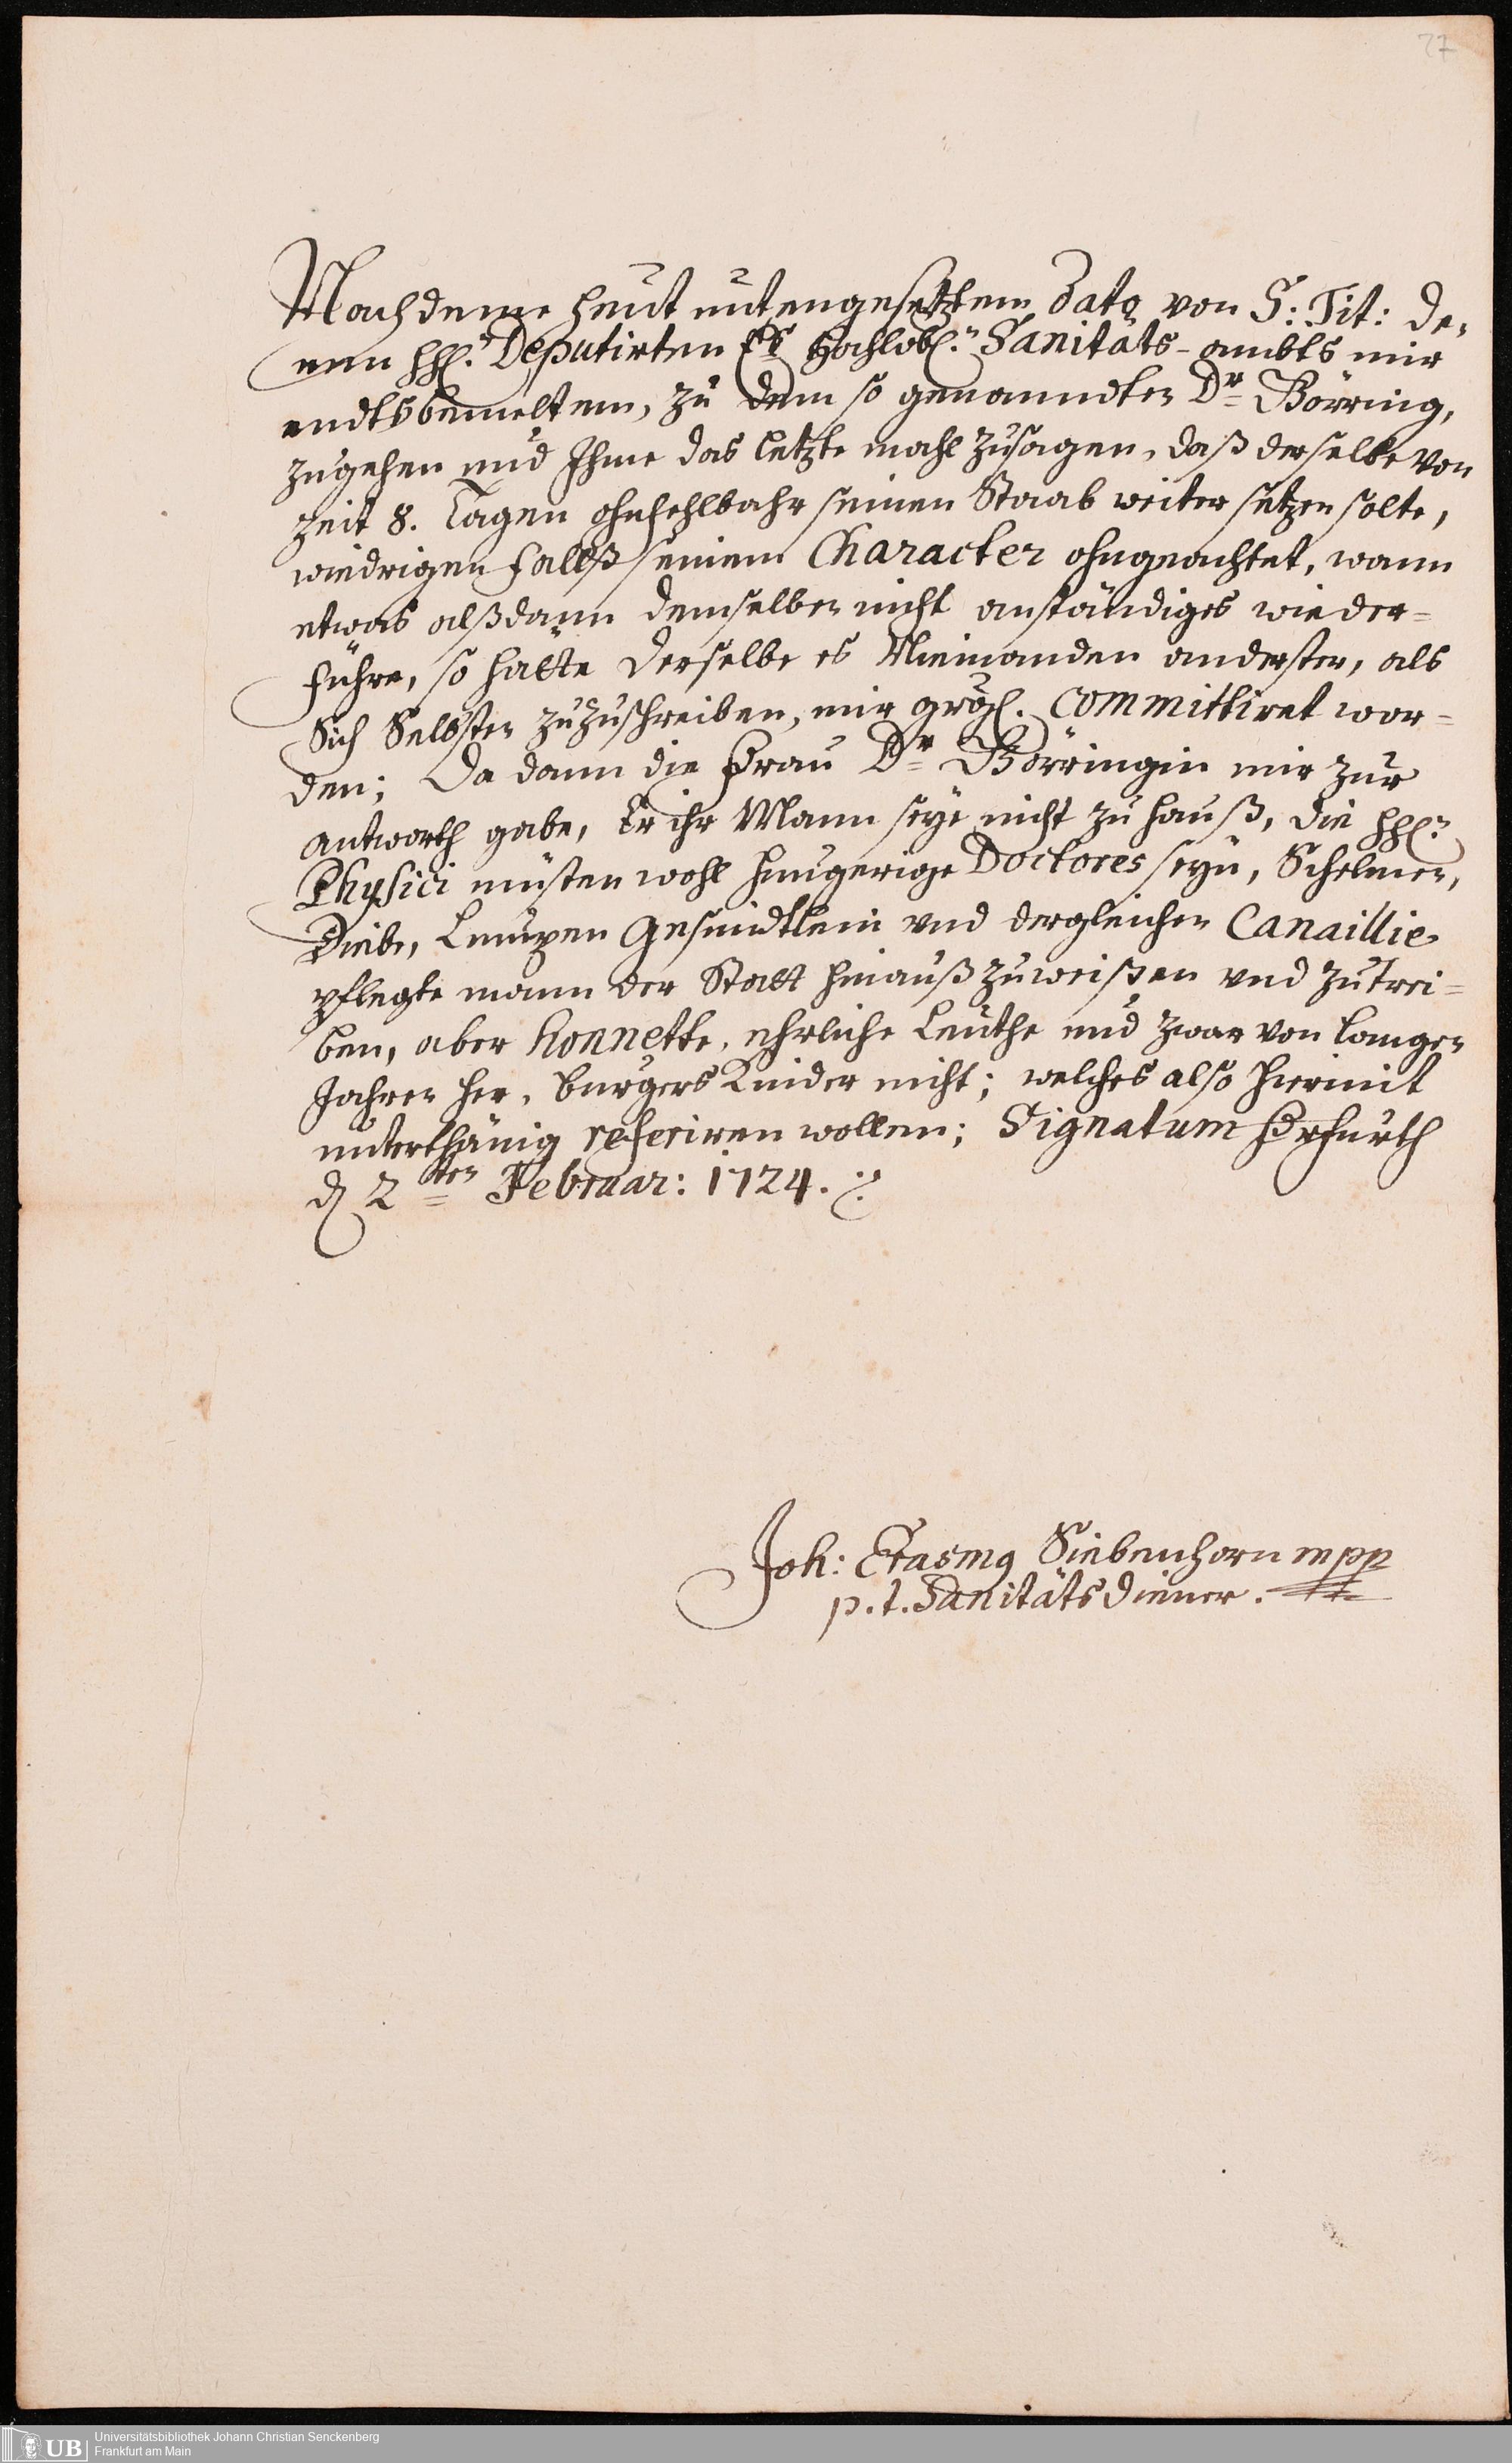 27
Nachdeme heut untengesetztem dato von S: Tit: de-
nen HHl.n Deputirten Es Hochlobl.n Sanitäts-ambts mir
endtsbemeltem, zu dem so genanndten Dr Börring,
zugehen und Ihme das letzte mahl zusagen, daß derselbe von
zeit 8. Tagen ohnfehlbahr seinen Staab weiter setzen solte,
wiedrigen fallß seinem Character ohngeachtet, wann
etwas alßdann demselben nicht anständiges wieder=
führe, so hatte derselbe es Niemanden anderster, als
Sich Selbsten zuzuschreiben, mir committiret wor=
den; Da dann die Frau Dr Börringin mir zur
antworth gabe, Er ihr Mann seye nicht zu hauß, die HHl.n
Physici müsten wohl hungerige Doctores seyn, Schelmen,
Diebe, Lumpen Gesindtlein und dergleichen Canaillie
pflegte mann der Statt hinauß zuweisen und zutrei=
ben, aber honnette, ehrliche Leuthe und zwar von langen
Jahren her, burgers Kinder nicht; welches also hiermit
unterthänig referiren wollen; Signatum Erfurth
d 2ten Februar: 1724.
Joh: Erasmg Siebenhorn mpp
p.t. Sanitäts diener.
UB
Universitätsbibliothek Johann Christian Senckenberg
Frankfurt am Main